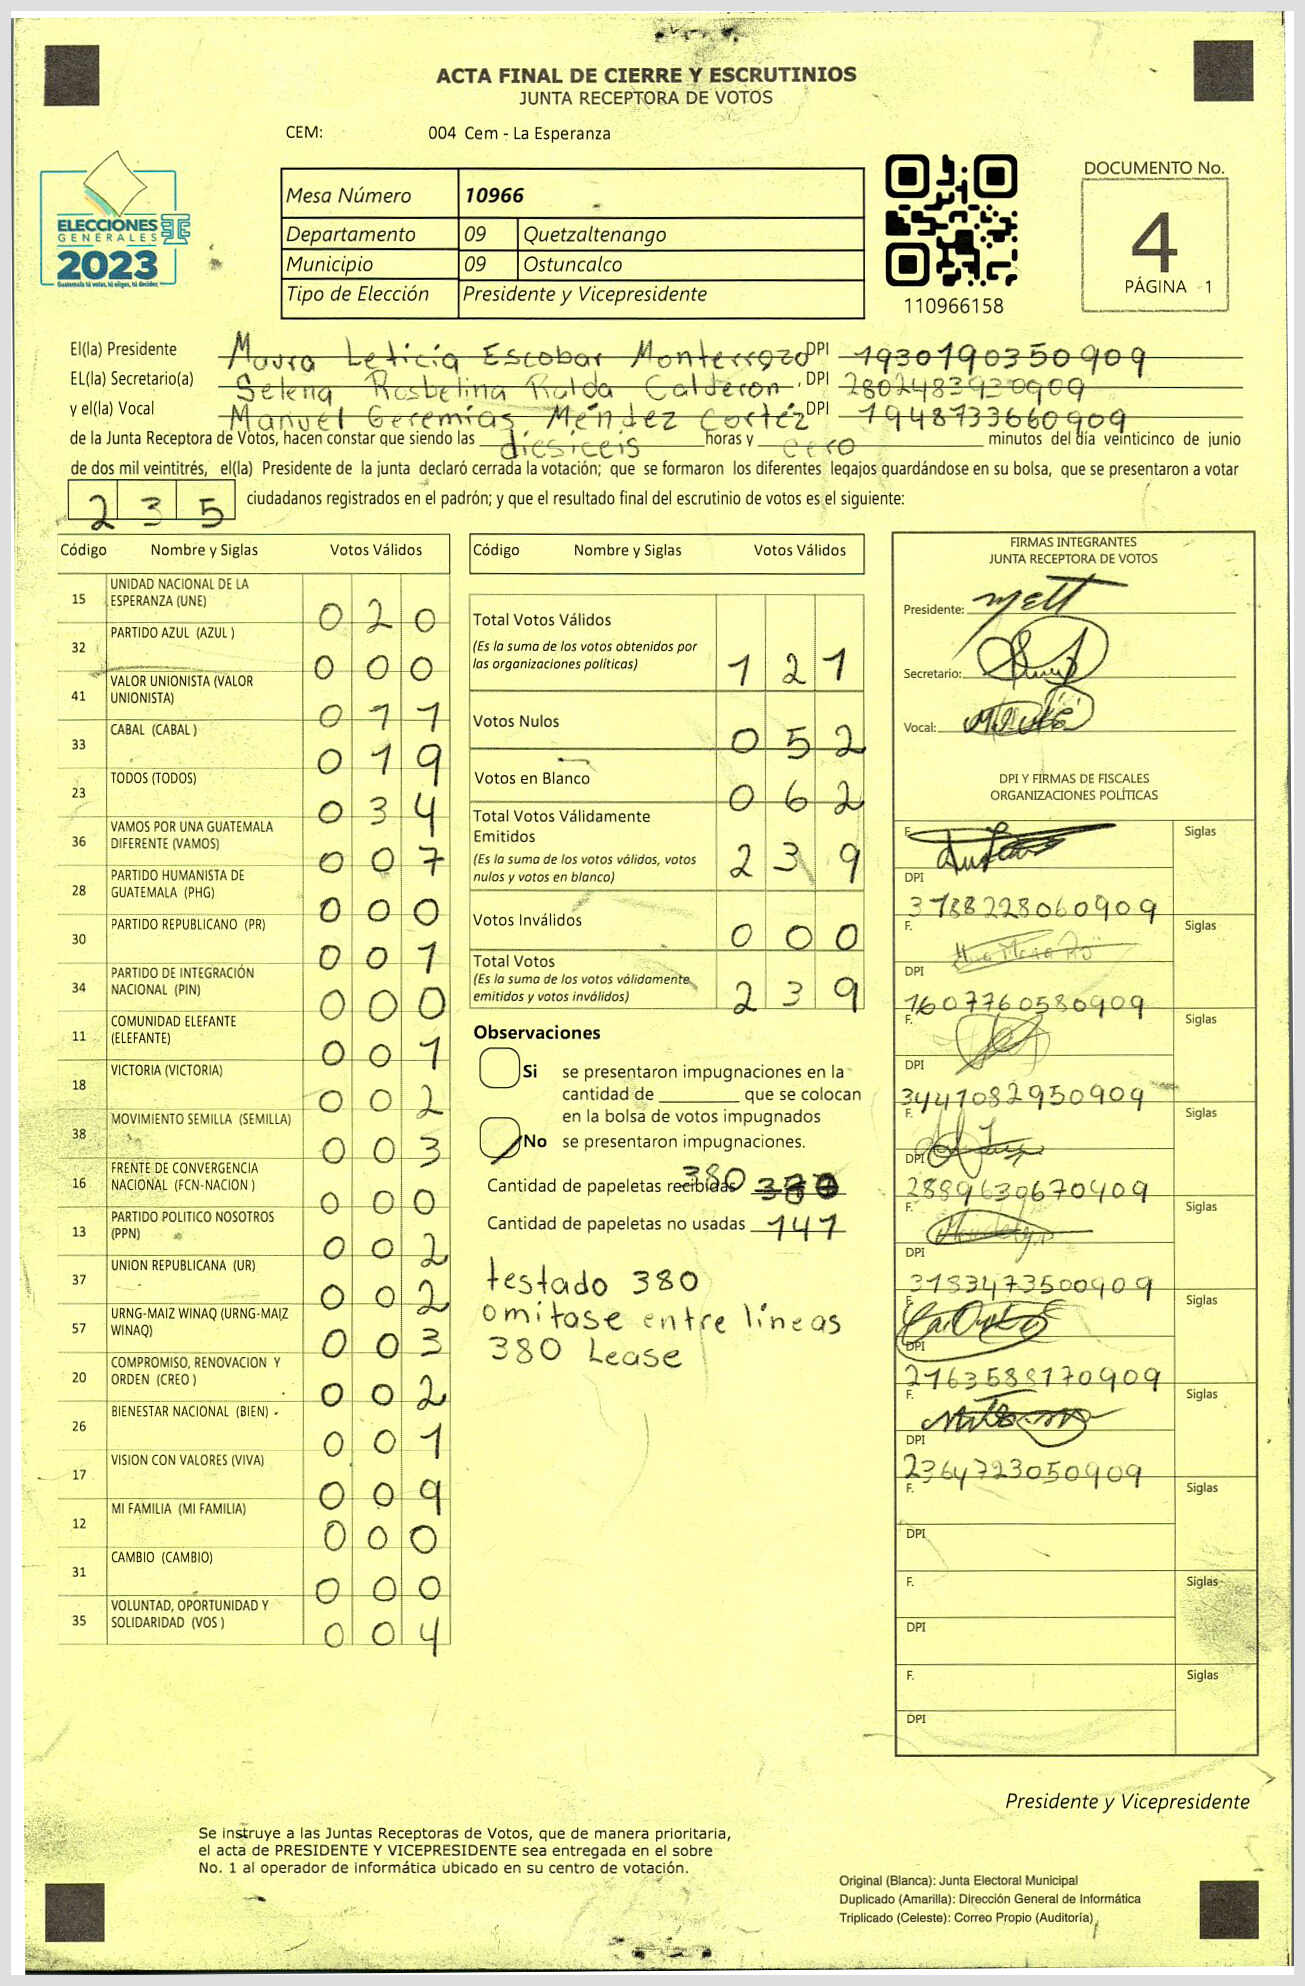 ACTA FINAL DE CIERRE Y ESCRUTINIOS
JUNTA RECEPTORA DE VOTOS
CEM: 004 Cem - La Esperanza
ELECCIONES
GENERALES
2023
Guatemala tú votas, tú eliges, tú decides
Mesa Número 10966
Departamento 09 Quetzaltenango
Municipio 09 Ostuncalco
Tipo de Elección Presidente y Vicepresidente
110966158
DOCUMENTO No.
4
PÁGINA 1
El(la) Presidente Mayra Leticia Escobar Monterrozo DPI 1930190350909
EL(la) Secretario(a) Selena Rosbelina Ralda Calderon, DPI 2802483930909
y el(la) Vocal Manuel Geremías Méndez Cortéz DPI 1948733660909
de la Junta Receptora de Votos, hacen constar que siendo las diesiceis horas y cero minutos del día veinticinco de junio
de dos mil veintitrés, el(la) Presidente de la junta declaró cerrada la votación; que se formaron los diferentes legajos guardándose en su bolsa, que se presentaron a votar
235 ciudadanos registrados en el padrón; y que el resultado final del escrutinio de votos es el siguiente:
Código Nombre y Siglas Votos Válidos
15 UNIDAD NACIONAL DE LA ESPERANZA (UNE) 020
32 PARTIDO AZUL (AZUL ) 000
41 VALOR UNIONISTA (VALOR UNIONISTA) 011
33 CABAL (CABAL ) 019
23 TODOS (TODOS) 034
36 VAMOS POR UNA GUATEMALA DIFERENTE (VAMOS) 007
28 PARTIDO HUMANISTA DE GUATEMALA (PHG) 000
30 PARTIDO REPUBLICANO (PR) 001
34 PARTIDO DE INTEGRACIÓN NACIONAL (PIN) 000
11 COMUNIDAD ELEFANTE (ELEFANTE) 001
18 VICTORIA (VICTORIA) 002
38 MOVIMIENTO SEMILLA (SEMILLA) 003
16 FRENTE DE CONVERGENCIA NACIONAL (FCN-NACION ) 000
13 PARTIDO POLITICO NOSOTROS (PPN) 002
37 UNION REPUBLICANA (UR) 002
57 URNG-MAIZ WINAQ (URNG-MAIZ WINAQ) 003
20 COMPROMISO, RENOVACION Y ORDEN (CREO ) 002
26 BIENESTAR NACIONAL (BIEN) 001
17 VISION CON VALORES (VIVA) 009
12 MI FAMILIA (MI FAMILIA) 000
31 CAMBIO (CAMBIO) 000
35 VOLUNTAD, OPORTUNIDAD Y SOLIDARIDAD (VOS ) 004
Código Nombre y Siglas Votos Válidos
Total Votos Válidos 121
(Es la suma de los votos obtenidos por
las organizaciones políticas)
Votos Nulos 052
Votos en Blanco 062
Total Votos Válidamente
Emitidos 239
(Es la suma de los votos válidos, votos
nulos y votos en blanco)
Votos Inválidos 000
Total Votos 239
(Es la suma de los votos válidamente
emitidos y votos inválidos)
Observaciones
Si se presentaron impugnaciones en la
cantidad de ________ que se colocan
en la bolsa de votos impugnados
No se presentaron impugnaciones.
Cantidad de papeletas recibidas 380
Cantidad de papeletas no usadas 141
testado 380
omitase entre líneas
380 Lease
FIRMAS INTEGRANTES
JUNTA RECEPTORA DE VOTOS
Presidente:
Secretario:
Vocal:
DPI Y FIRMAS DE FISCALES
ORGANIZACIONES POLÍTICAS
F. Siglas
DPI
3188228060909
F. Siglas
DPI
1607760580909
F. Siglas
DPI
3441082950909
F. Siglas
DPI
2889630670409
F. Siglas
DPI
3183473500909
F. Siglas
DPI
2163588170909
F. Siglas
DPI
2364723050909
F. Siglas
DPI
F. Siglas
DPI
F. Siglas
DPI
Presidente y Vicepresidente
Se instruye a las Juntas Receptoras de Votos, que de manera prioritaria,
el acta de PRESIDENTE Y VICEPRESIDENTE sea entregada en el sobre
No. 1 al operador de informática ubicado en su centro de votación.
Original (Blanca): Junta Electoral Municipal
Duplicado (Amarilla): Dirección General de Informática
Triplicado (Celeste): Correo Propio (Auditoría)